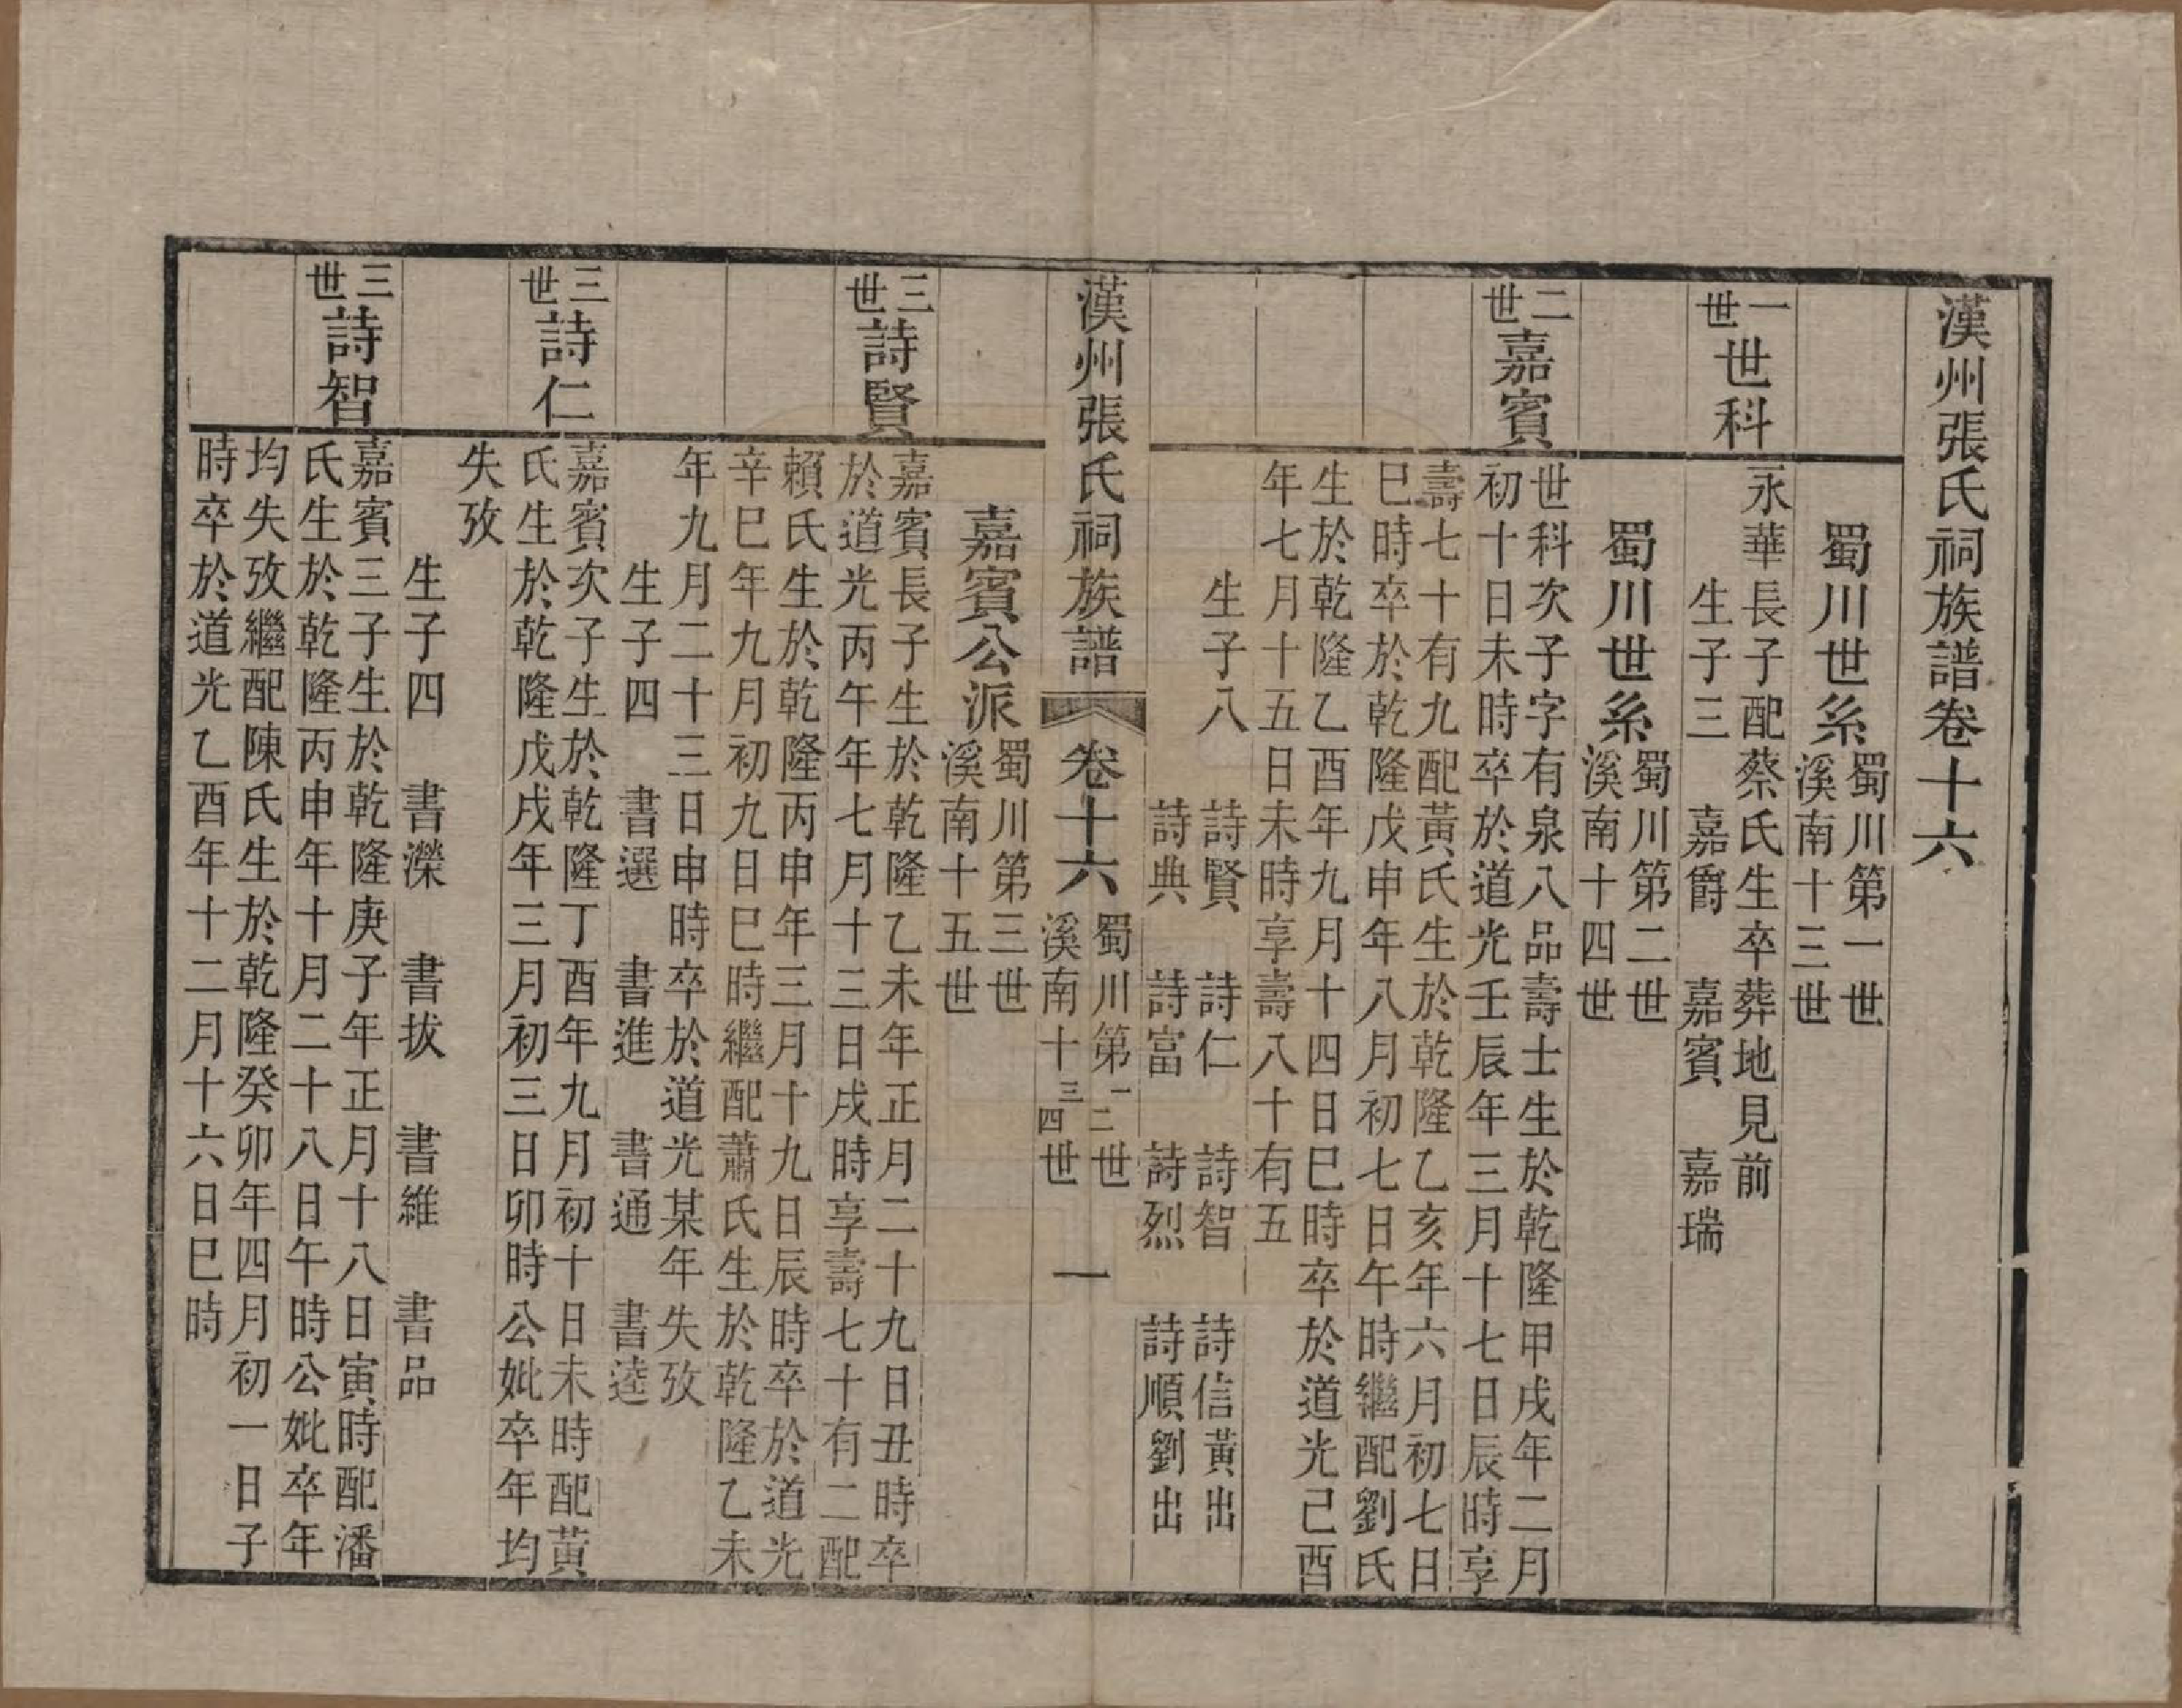 漢州張氏祠族譜卷十六
蜀川世系 蜀川第一世
溪南十三世
一世 世科
永華長子配蔡氏生卒葬地見前
生子三 嘉爵 嘉賓 嘉瑞
蜀川世系 蜀川第二世
溪南十四世
二世 嘉賓
世科次子字有泉八品壽士生於乾隆甲戌年二月
初十日未時卒於道光壬辰年三月十七日辰時享
壽七十有九配黃氏生於乾隆乙亥年六月初七日
巳時卒於乾隆戊申年八月初七日午時繼配劉氏
生於乾隆乙酉年九月十四日巳時卒於道光己酉
年七月十五日未時享壽八十有五
生子八 詩賢 詩仁 詩智 詩信黃出
詩典 詩富 詩烈 詩順劉出
漢州張氏祠族譜 卷十六 蜀川第一二世 溪南十三四世 一
嘉賓公派 蜀川第三世
溪南十五世
三世 詩賢
嘉賓長子生於乾隆乙未年正月二十九日丑時卒
於道光丙午年七月十三日戌時享壽七十有二配
賴氏生於乾隆丙申年三月十九日辰時卒於道光
辛巳年九月初九日巳時繼配蕭氏生於乾隆乙未
年九月二十三日申時卒於道光某年失攷
生子四 書選 書進 書通 書逵
三世 詩仁
嘉賓次子生於乾隆丁酉年九月初十日未時配黃
氏生於乾隆戊戌年三月初三日卯時公妣卒年均
失攷
生子四 書濼 書拔 書維 書品
三世 詩智
嘉賓三子生於乾隆庚子年正月十八日寅時配潘
氏生於乾隆丙申年十月二十八日午時公妣卒年
均失攷繼配陳氏生於乾隆癸卯年四月初一日子
時卒於道光乙酉年十二月十六日巳時